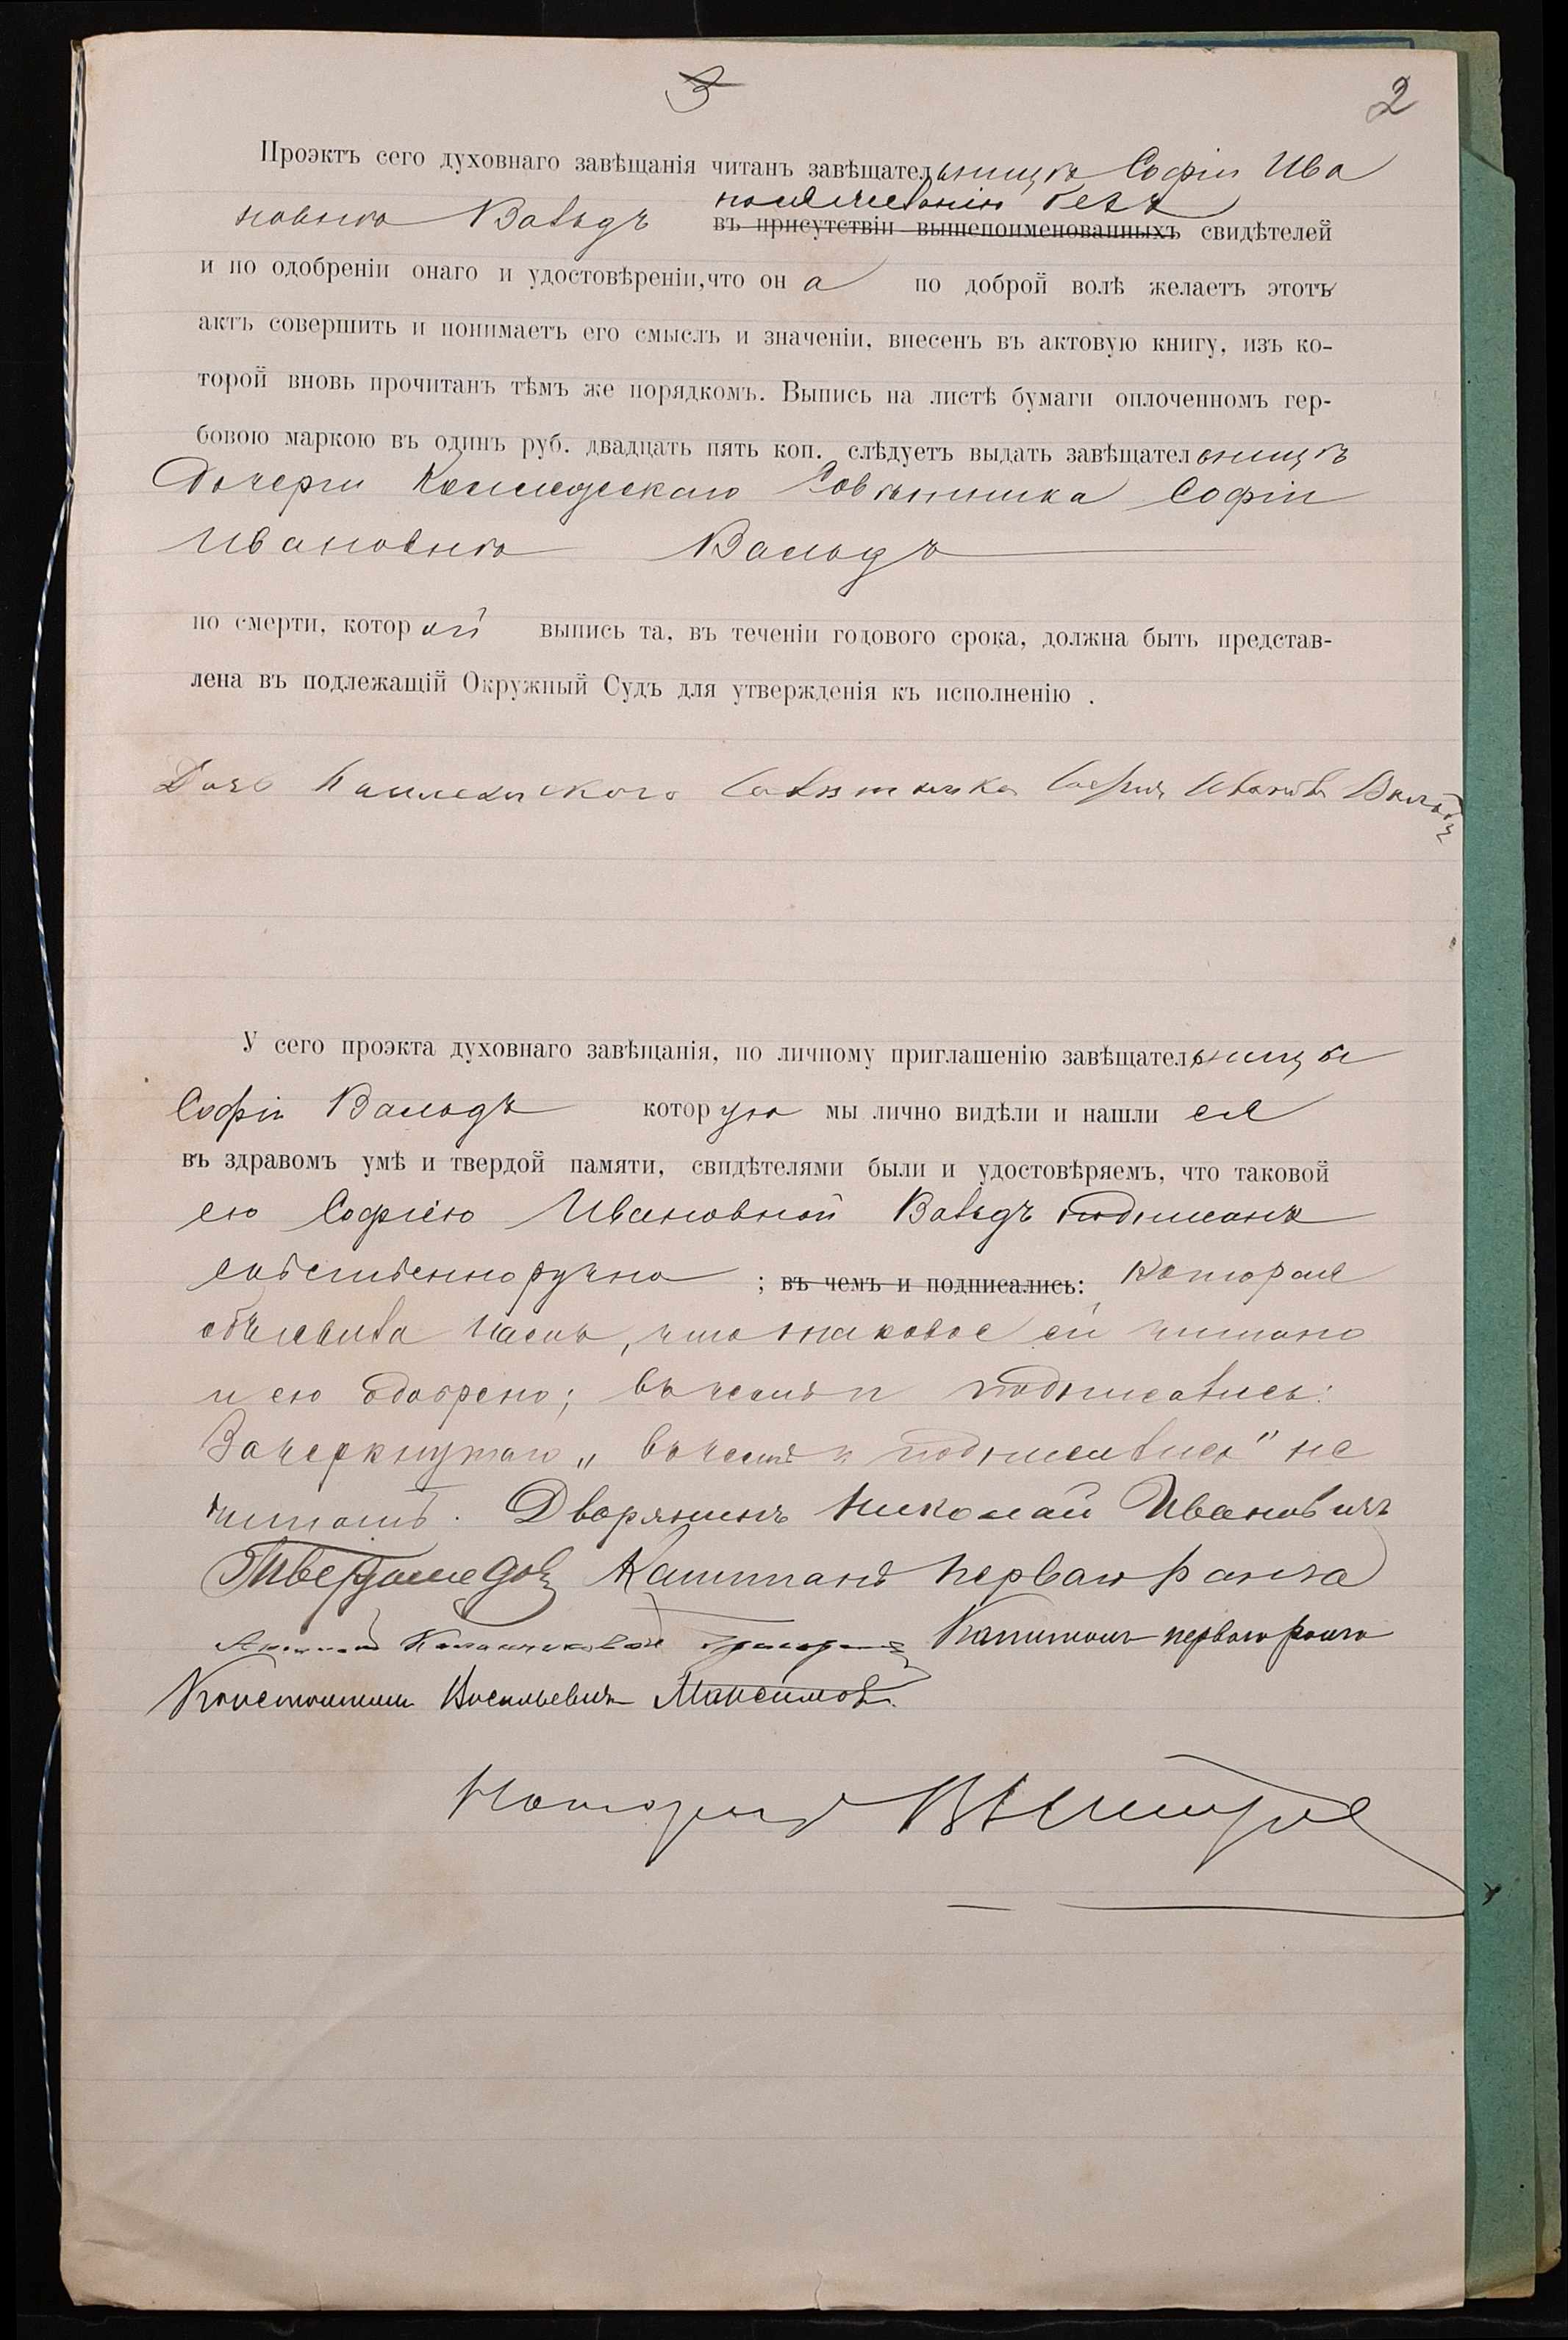 3
2
Проэктъ сего духовнаго завѣщанія читанъ завѣщательницѣ Софіи Ива
по ея желанію безъ
новнѣ Вальдъ въ присутствіи вышепоименованныхъ свидѣтелей
и по одобреніи онаго и удостовѣреніи, что она по доброй волѣ желаетъ этотъ
актъ совершить и понимаетъ его смыслъ и значеніи, внесенъ въ актовую книгу, изъ ко-
торой вновь прочитанъ тѣмъ же порядкомъ. Выпись на листѣ бумаги оплоченномъ гер-
бовою маркою въ одинъ руб. двадцать пять коп. слѣдуетъ выдать завѣщательницѣ
Дочери Коллежскаго Совѣтника Софіи
Ивановнѣ Вальдъ
по смерти, которой выпись та, въ теченіи годового срока, должна быть представ-
лена въ подлежащій Окружный Судъ для утвержденія къ исполненію .
Дочь Коллежского Совѣтника Софія Иванова Вальдъ
У сего проэкта духовнаго завѣщанія, по личному приглашенію завѣщательницы
Софіи Вальдъ которую мы лично видѣли и нашли ея
въ здравомъ умѣ и твердой памяти, свидѣтелями были и удостовѣряемъ, что таковой
ею Софіею Ивановной Вальдъ подписанъ
собственноручно ; въ чемъ и подписались: которая
объявила намъ, что таковое ей читано
и ею одобрено; въ чемъ и подписались:
Зачеркнутаго „въ чемъ и подписались" не
читать. Дворянинъ Николай Ивановичъ
Капитанъ перваго ранга
Капитанъ перваго ранга
Константинъ Васильевичъ Максимовъ.
Нотаріусъ